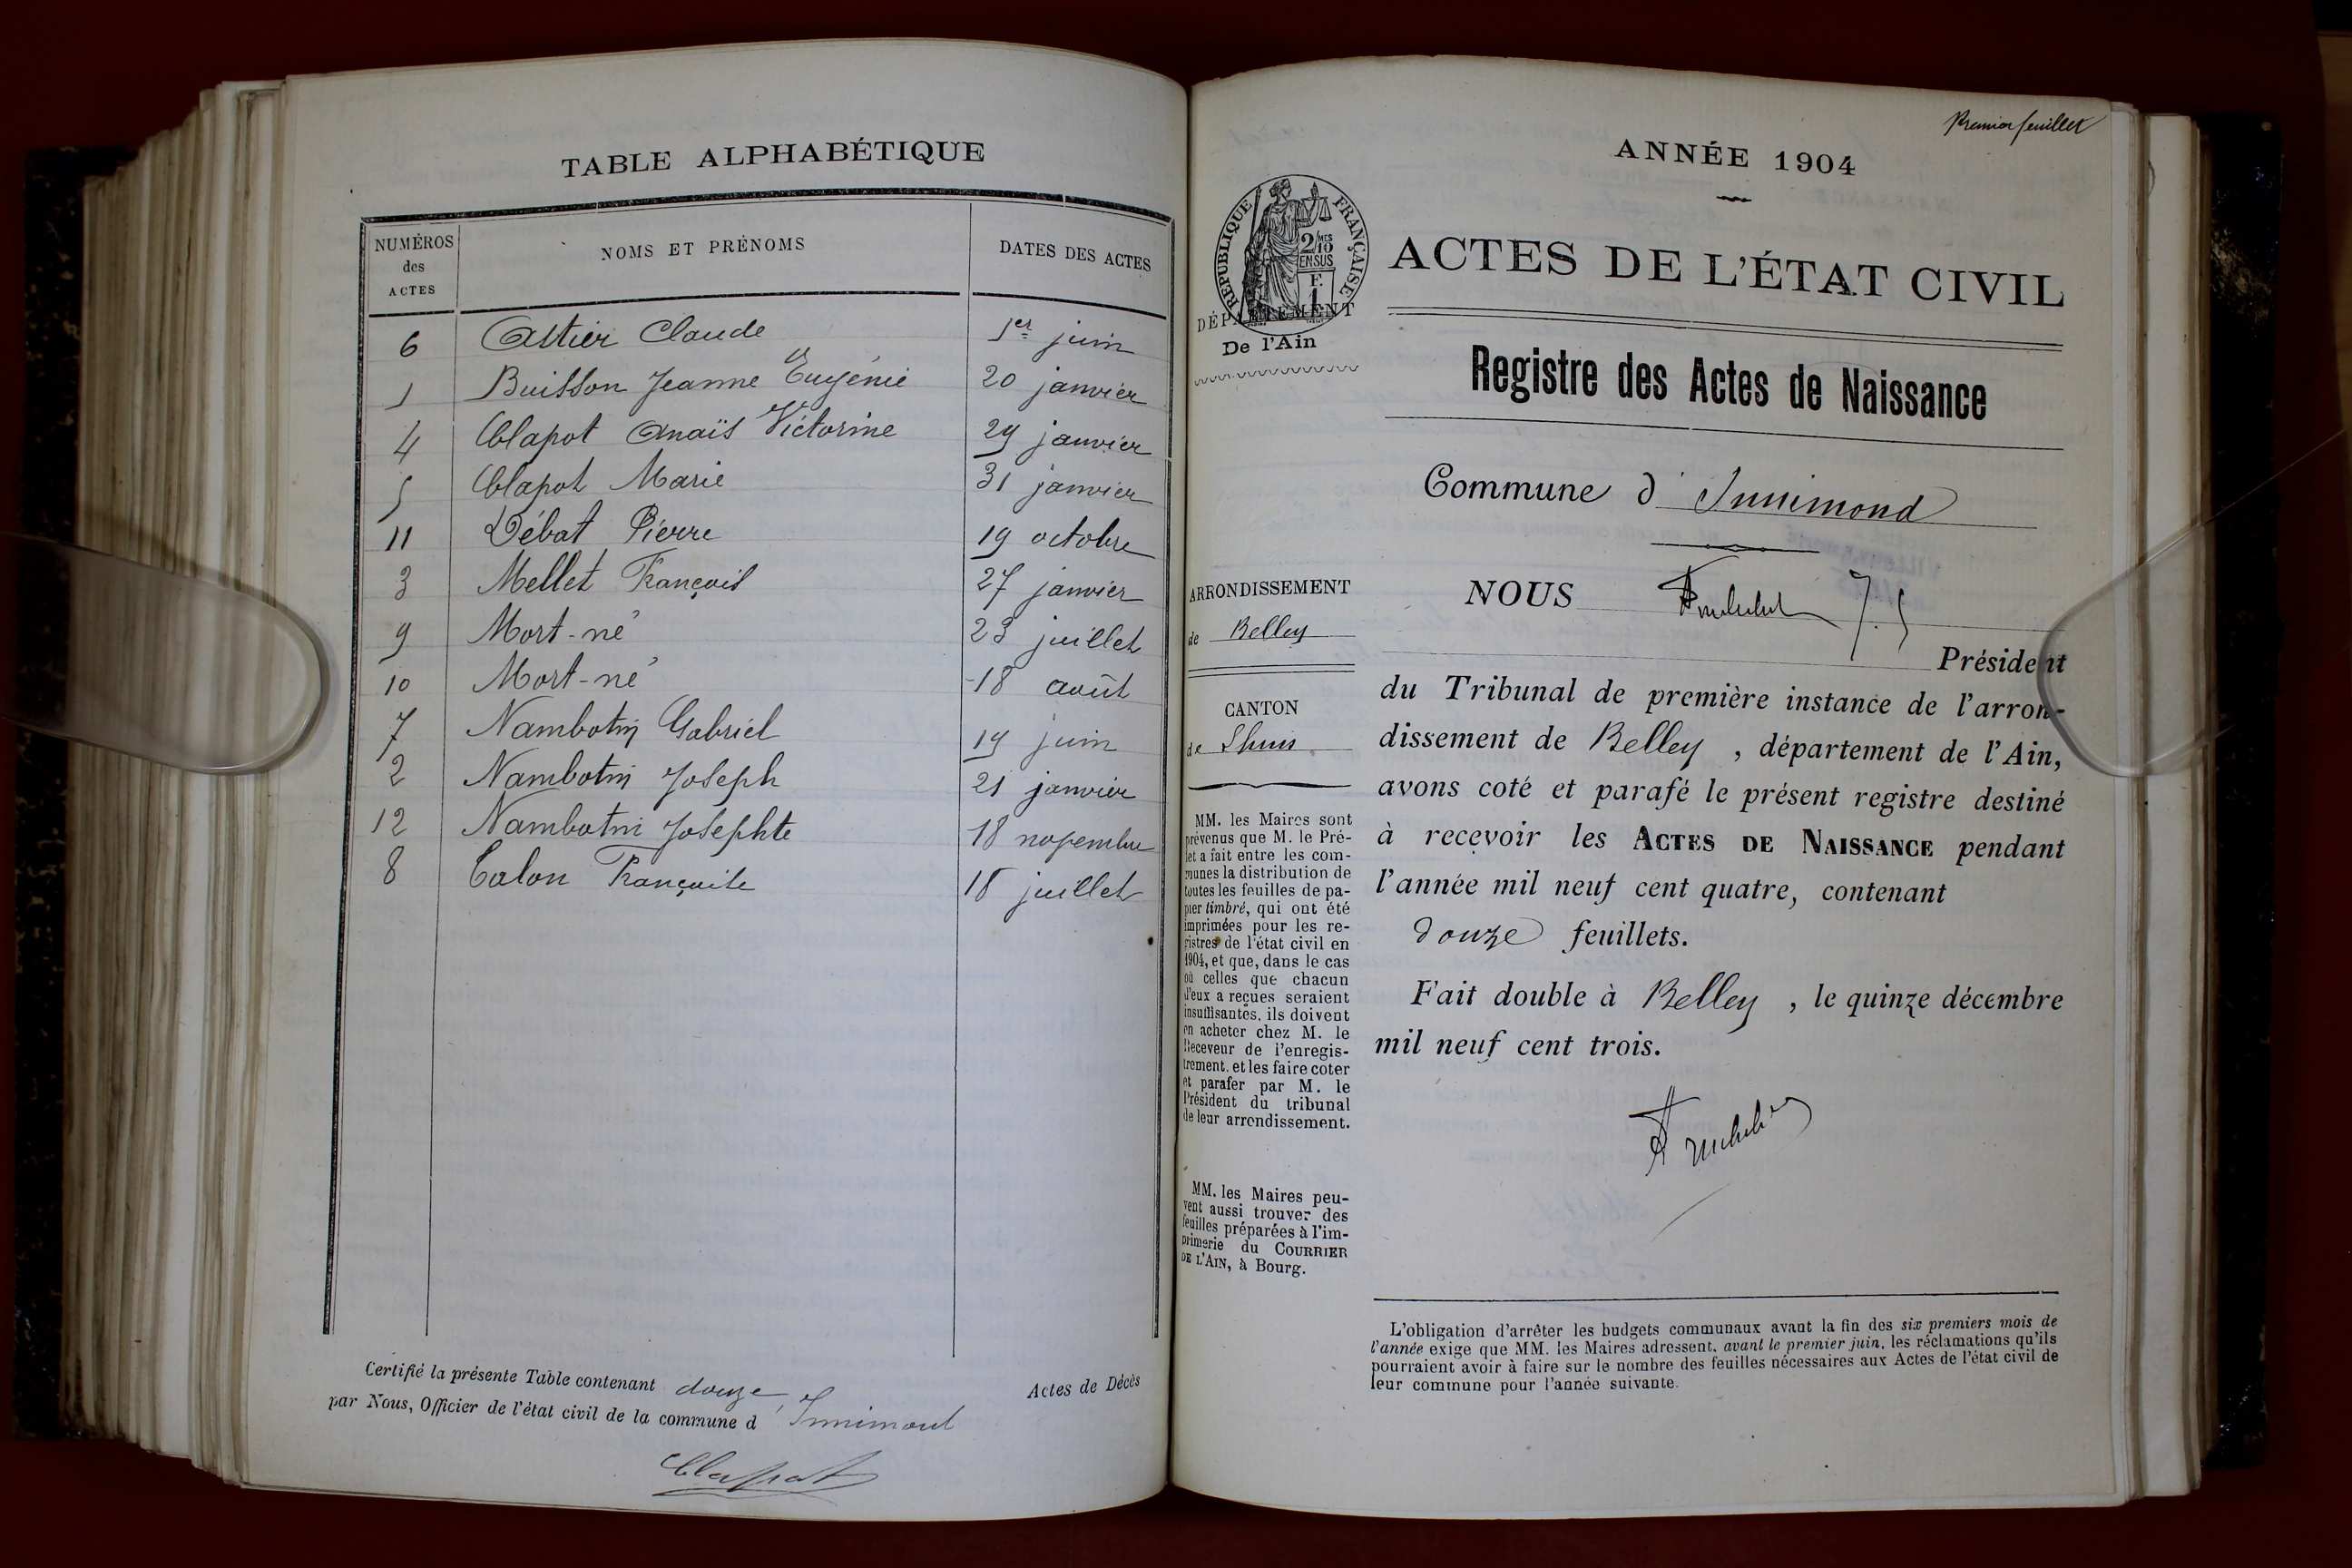 TABLE ALPHABÉTIQUE
NUMÉROS des ACTES
NOMS ET PRÉNOMS
DATES DES ACTES
6 Astier Claude 1er juin
1 Buisson Jeanne Eugénie 20 janvier
4 Clapot Anaïs Victorine 29 janvier
5 Clapot Marie 31 janvier
11 Débat Pierre 19 octobre
3 Mellet François 27 janvier
9 Mort-né 23 juillet
10 Mort-né 18 août
7 Nambotin Gabriel 19 juin
2 Nambotin Joseph 21 janvier
12 Nambotin Josephte 18 novembre
8 Calon Françoise 18 juillet
Certifié la présente Table contenant douze Actes de Décès
par Nous, Officier de l'état civil de la commune d'Innimont
Clapot
Premier feuillet
ANNÉE 1904
RÉPUBLIQUE FRANÇAISE
2/10 MES
EN SUS
F.
1
DÉPARTEMENT
De l'Ain
ACTES DE L'ÉTAT CIVIL
Registre des Actes de Naissance
Commune d'Innimond
ARRONDISSEMENT
de Belley
CANTON
de Lhuis
MM. les Maires sont
prévenus que M. le Pré-
fet a fait entre les com-
munes la distribution de
toutes les feuilles de pa-
pier timbré, qui ont été
imprimées pour les re-
gistres de l'état civil en
1904, et que, dans le cas
où celles que chacun
d'eux a reçues seraient
insuffisantes, ils doivent
en acheter chez M. le
Receveur de l'enregis-
trement, et les faire coter
et parafer par M. le
Président du tribunal
de leur arrondissement.
MM. les Maires peu-
vent aussi trouver des
feuilles préparées à l'im-
primerie du COURRIER
DE L'AIN, à Bourg.
NOUS
Président
du Tribunal de première instance de l'arron-
dissement de Belley, département de l'Ain,
avons coté et parafé le présent registre destiné
à recevoir les ACTES DE NAISSANCE pendant
l'année mil neuf cent quatre, contenant
douze feuillets.
Fait double à Belley, le quinze décembre
mil neuf cent trois.
L'obligation d'arrêter les budgets communaux avant la fin des six premiers mois de
l'année exige que MM. les Maires adressent, avant le premier juin, les réclamations qu'ils
pourraient avoir à faire sur le nombre des feuilles nécessaires aux Actes de l'état civil de
leur commune pour l'année suivante.